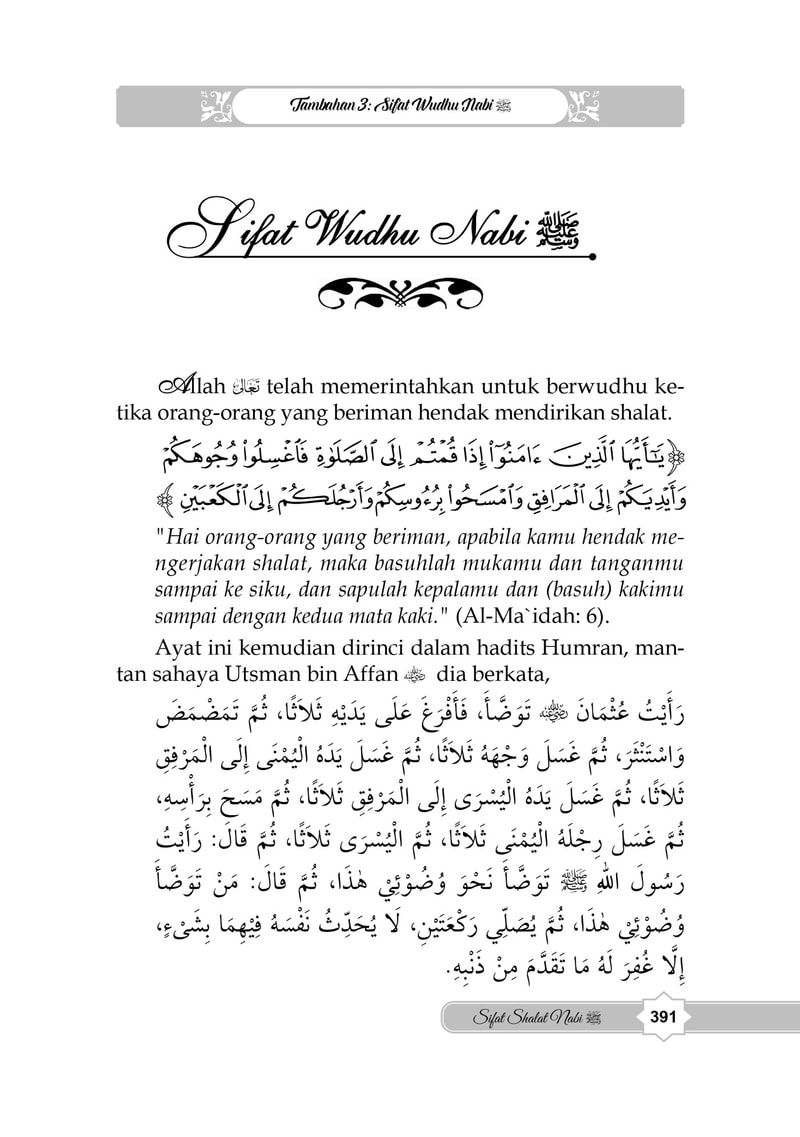 Tambahan 3: Sifat Wudhu Nabi ﷺ
Sifat Wudhu Nabi ﷺ
Allah تَعَالَى telah memerintahkan untuk berwudhu ke-
tika orang-orang yang beriman hendak mendirikan shalat.
﴿يَـٰٓأَيُّهَا ٱلَّذِينَ ءَامَنُوٓا۟ إِذَا قُمْتُمْ إِلَى ٱلصَّلَوٰةِ فَٱغْسِلُوا۟ وُجُوهَكُمْ
وَأَيْدِيَكُمْ إِلَى ٱلْمَرَافِقِ وَٱمْسَحُوا۟ بِرُءُوسِكُمْ وَأَرْجُلَكُمْ إِلَى ٱلْكَعْبَيْنِ﴾
"Hai orang-orang yang beriman, apabila kamu hendak me-
ngerjakan shalat, maka basuhlah mukamu dan tanganmu
sampai ke siku, dan sapulah kepalamu dan (basuh) kakimu
sampai dengan kedua mata kaki." (Al-Ma`idah: 6).
Ayat ini kemudian dirinci dalam hadits Humran, man-
tan sahaya Utsman bin Affan رضي الله عنه dia berkata,
رَأَيْتُ عُثْمَانَ رضي الله عنه تَوَضَّأَ، فَأَفْرَغَ عَلَى يَدَيْهِ ثَلَاثًا، ثُمَّ تَمَضْمَضَ
وَاسْتَنْثَرَ، ثُمَّ غَسَلَ وَجْهَهُ ثَلَاثًا، ثُمَّ غَسَلَ يَدَهُ الْيُمْنَى إِلَى الْمَرْفِقِ
ثَلَاثًا، ثُمَّ غَسَلَ يَدَهُ الْيُسْرَى إِلَى الْمَرْفِقِ ثَلَاثًا، ثُمَّ مَسَحَ بِرَأْسِهِ،
ثُمَّ غَسَلَ رِجْلَهُ الْيُمْنَى ثَلَاثًا، ثُمَّ الْيُسْرَى ثَلَاثًا، ثُمَّ قَالَ: رَأَيْتُ
رَسُولَ اللهِ ﷺ تَوَضَّأَ نَحْوَ وُضُوْئِيْ هٰذَا، ثُمَّ قَالَ: مَنْ تَوَضَّأَ
وُضُوْئِيْ هٰذَا، ثُمَّ يُصَلِّي رَكْعَتَيْنِ، لَا يُحَدِّثُ نَفْسَهُ فِيْهِمَا بِشَيْءٍ،
إِلَّا غُفِرَ لَهُ مَا تَقَدَّمَ مِنْ ذَنْبِهِ.
Sifat Shalat Nabi ﷺ 391